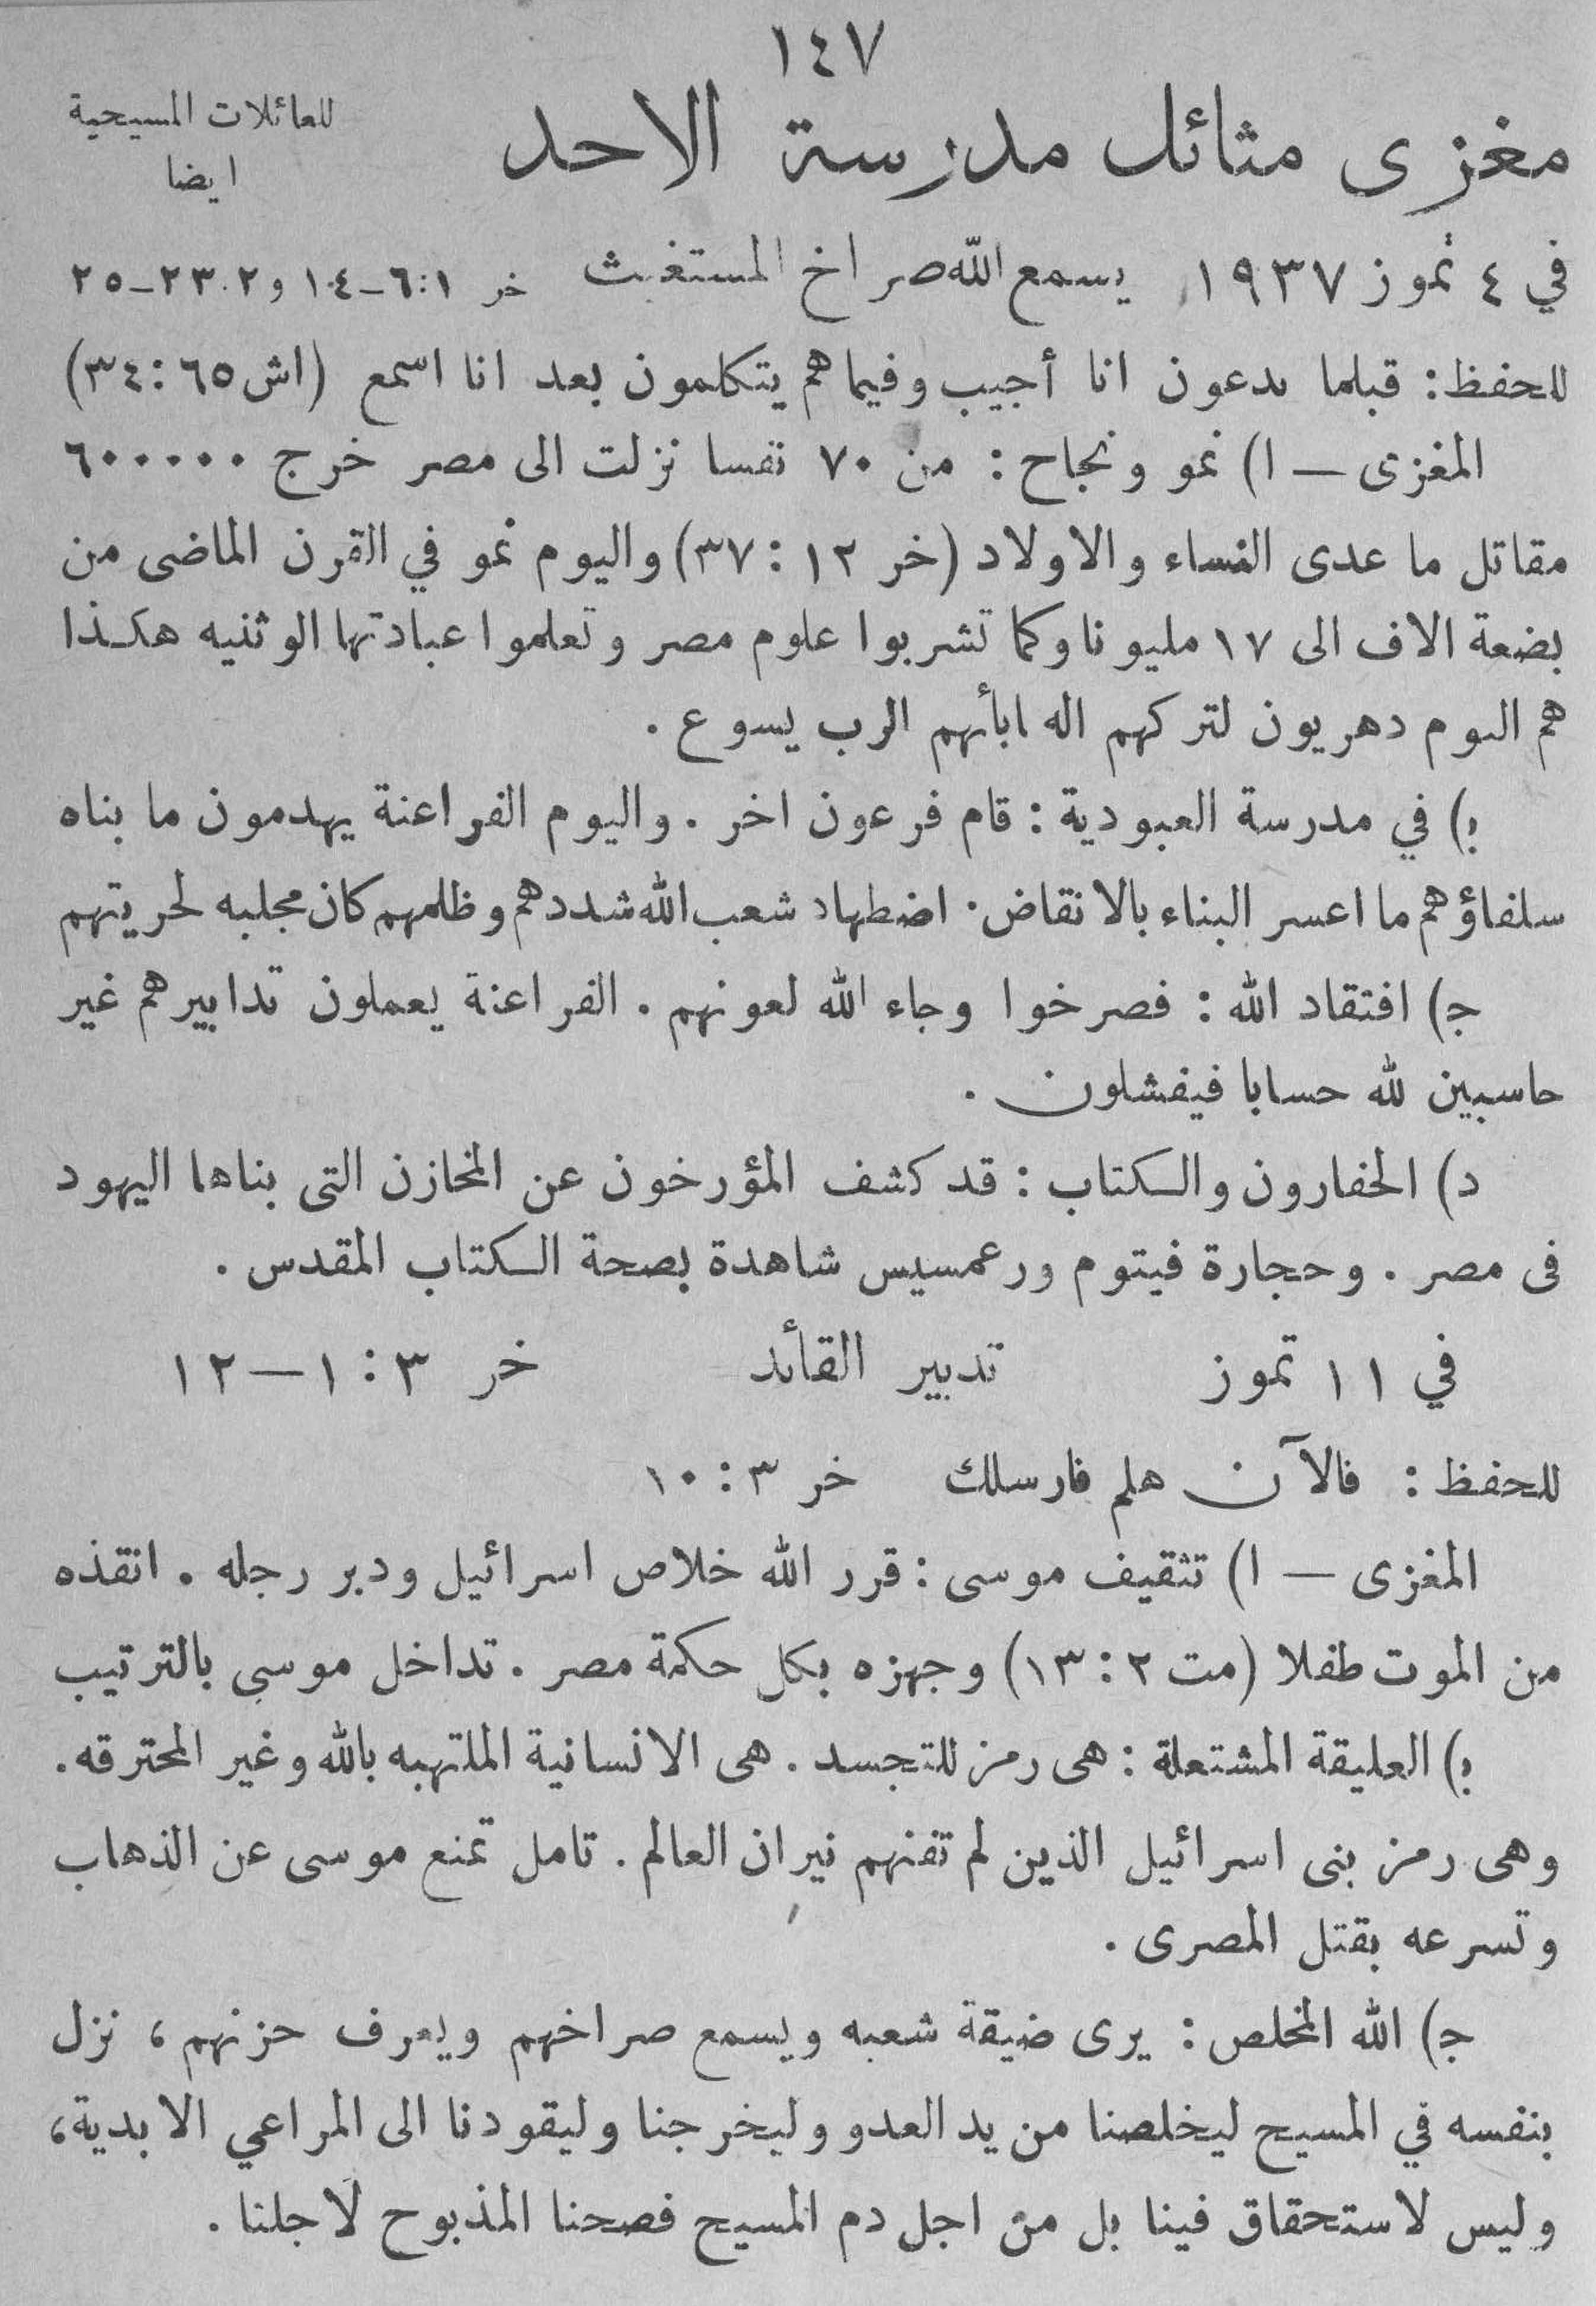 ١٤٧
مغزى مثائل مدرسة الاحد
للعائلات المسيحية
ايضا
في ٤ تموز ١٩٣٧ يسمع الله صراخ المستغيث خر ١:٦-١٤ و٢٣.٢-٢٥
للحفظ: قبلما يدعون انا أجيب وفيما هم يتكلمون بعد انا اسمع (اش ٦٥:٣٤)
المغزى — ا) نمو ونجاح: من ٧٠ نفسا نزلت الى مصر خرج ٦٠٠٠٠٠
مقاتل ما عدى النساء والاولاد (خر ١٢:٣٧) واليوم نمو في القرن الماضى من
بضعة الاف الى ١٧ مليونا وكما تشربوا علوم مصر وتعلموا عبادتها الوثنيه هكذا
هم اليوم دهريون لتركهم اله ابأئهم الرب يسوع.
ب) في مدرسة العبودية: قام فرعون اخر. واليوم الفراعنة يهدمون ما بناه
سلفاؤهم ما اعسر البناء بالانقاض. اضطهاد شعب الله شددهم وظلمهم كان مجلبه لحريتهم
ج) افتقاد الله: فصرخوا وجاء الله لعونهم. الفراعنة يعملون تدابيرهم غير
حاسبين لله حسابا فيفشلون.
د) الحفارون والكتاب: قد كشف المؤرخون عن المخازن التى بناها اليهود
فى مصر. وحجارة فيتوم ورعمسيس شاهدة بصحة الكتاب المقدس.
في ١١ تموز تدبير القأئد خر ٣:١—١٢
للحفظ: فالآن هلم فارسلك خر ٣:١٠
المغزى — ا) تثقيف موسى: قرر الله خلاص اسرائيل ودبر رجله. انقذه
من الموت طفلا (مت ٢:١٣) وجهزه بكل حكمة مصر. تداخل موسى بالترتيب
ب) العليقة المشتعلة: هى رمز للتجسد. هى الانسانية الملتهبه بالله وغير المحترقه.
وهى رمز بنى اسرائيل الذين لم تفنهم نيران العالم. تامل تمنع موسى عن الذهاب
وتسرعه بقتل المصرى.
ج) الله المخلص: يرى ضيقة شعبه ويسمع صراخهم ويعرف حزنهم، نزل
بنفسه في المسيح ليخلصنا من يد العدو وليخرجنا وليقودنا الى المراعي الابدية،
وليس لاستحقاق فينا بل من اجل دم المسيح فصحنا المذبوح لاجلنا.